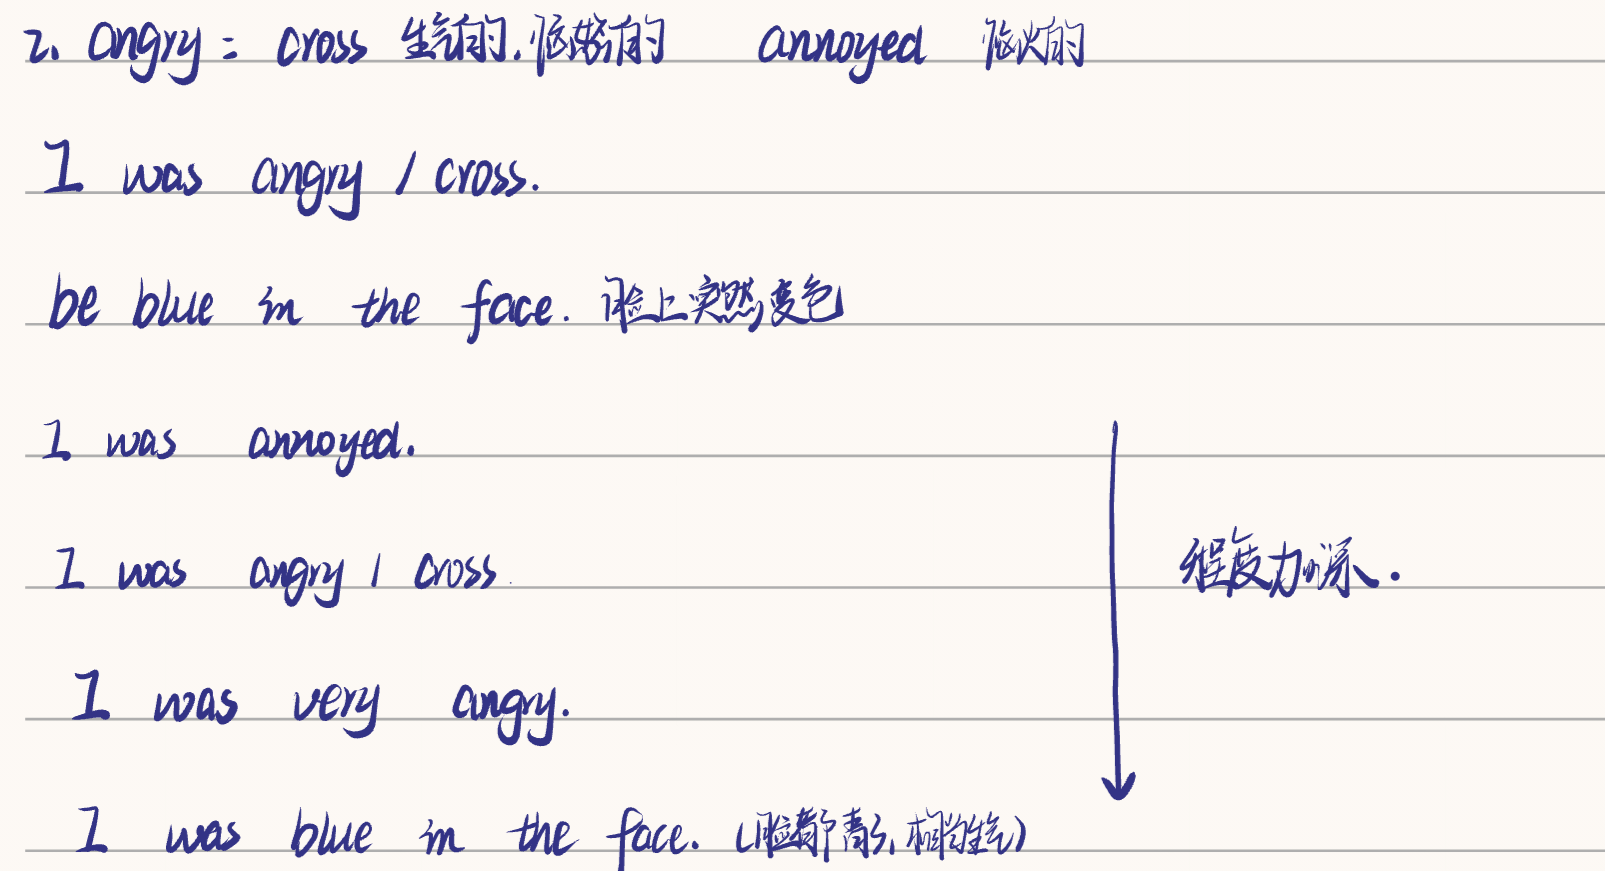 2. angry = cross 生气的.恼怒的 annoyed 恼火的
I was angry / cross.
be blue in the face. 脸上突然变色
I was annoyed.
I was angry / cross.
程度加深.
I was very angry.
I was blue in the face. (脸都青了,相当生气)